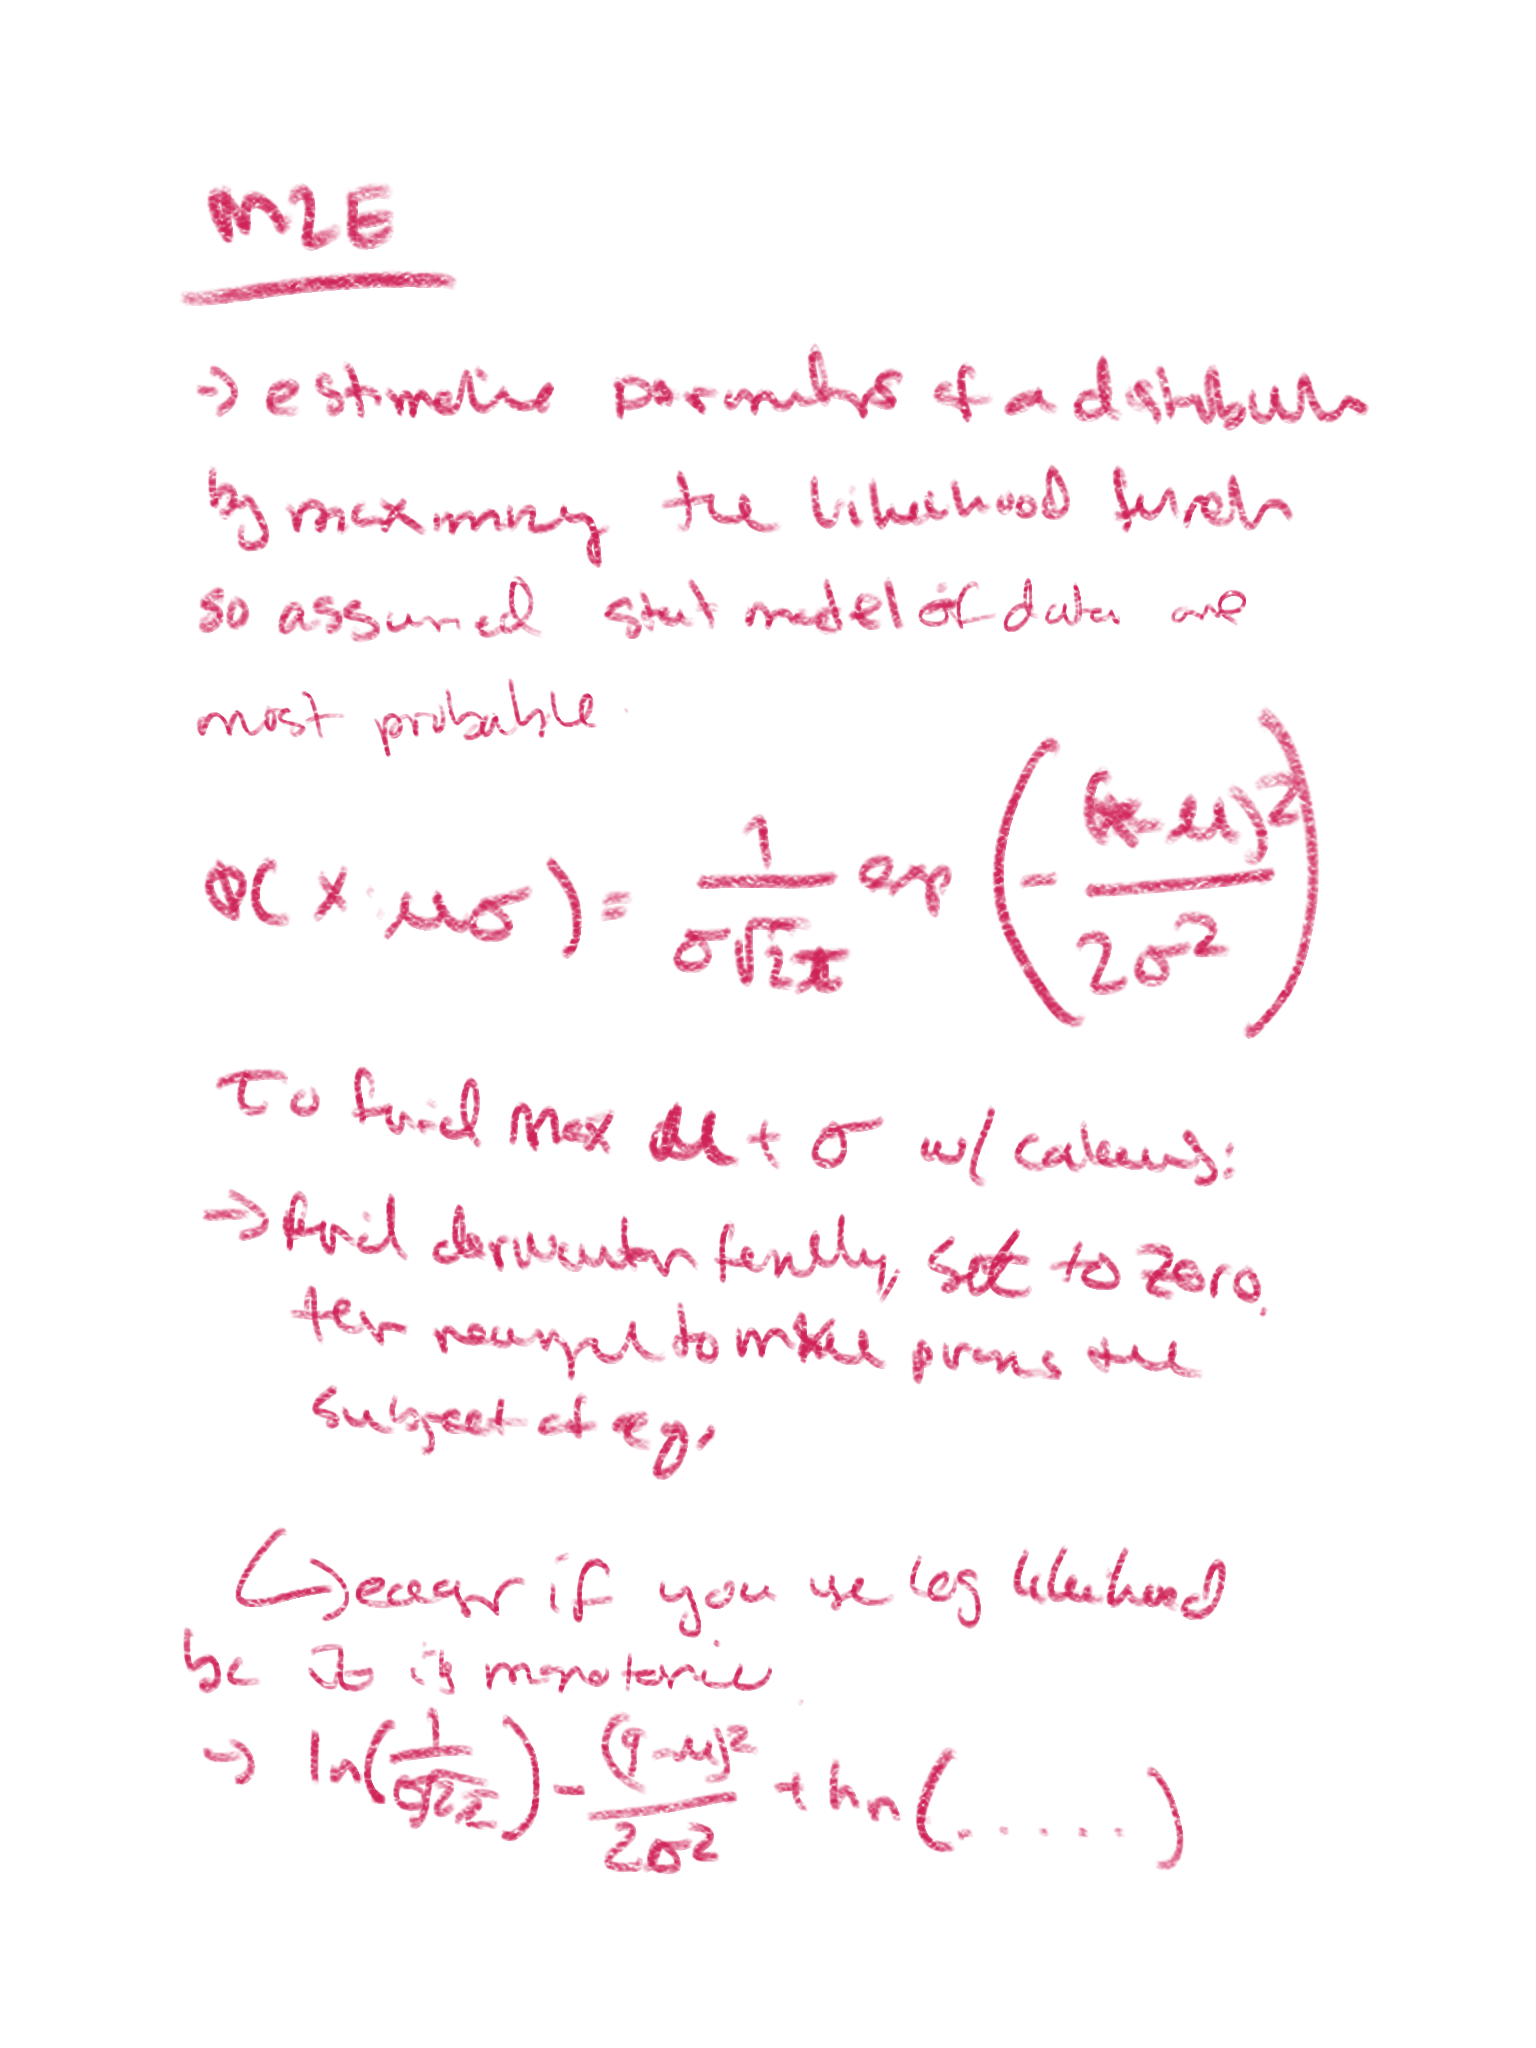 MLE
→ estimative parameters of a distribution
by maximizing the likelihood function
so assumed stat model of data are
most probable.
P(x; μσ) = 1/(σ√2π) exp(-(x-μ)²/(2σ²))
To find max μ + σ w/ calculus:
→ find derivative of, set to zero,
then rearrange to make params the
subject of eq.
↳ easier if you use log likelihood
bc it is monotonic
→ ln(1/(σ√2π)) - (9-μ)²/(2σ²) + ln(.....)